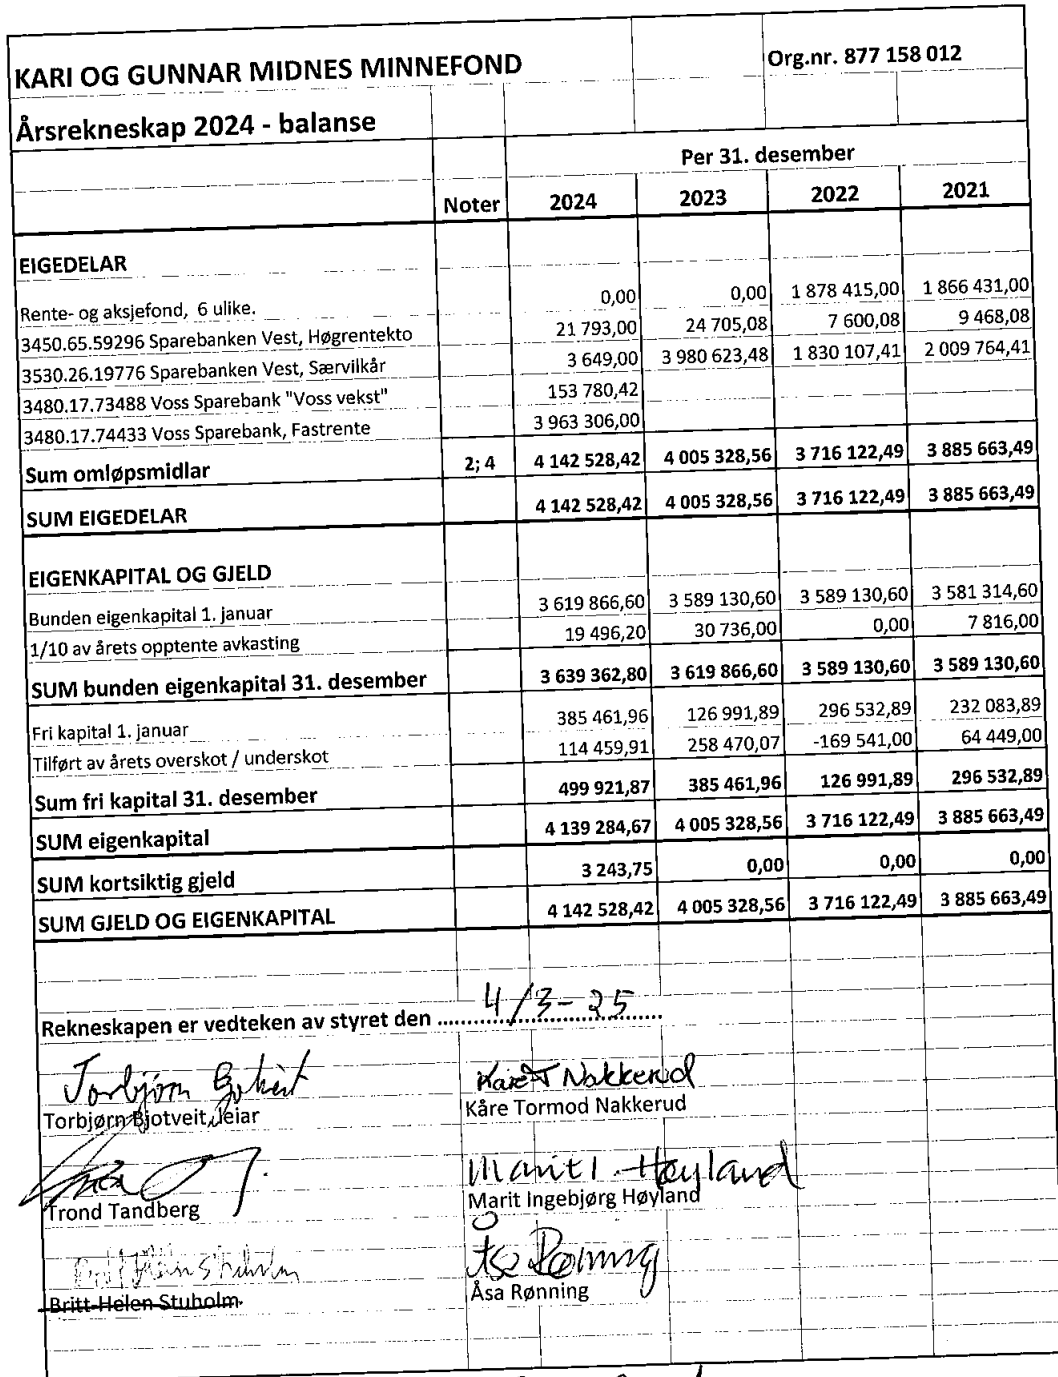 KARI OG GUNNAR MIDNES MINNEFOND Org.nr. 877 158 012
Årsrekneskap 2024 - balanse
Per 31. desember
Noter 2024 2023 2022 2021
EIGEDELAR
Rente- og aksjefond, 6 ulike. 0,00 0,00 1 878 415,00 1 866 431,00
3450.65.59296 Sparebanken Vest, Høgrentekto 21 793,00 24 705,08 7 600,08 9 468,08
3530.26.19776 Sparebanken Vest, Særvilkår 3 649,00 3 980 623,48 1 830 107,41 2 009 764,41
3480.17.73488 Voss Sparebank "Voss vekst" 153 780,42
3480.17.74433 Voss Sparebank, Fastrente 3 963 306,00
Sum omløpsmidlar 2; 4 4 142 528,42 4 005 328,56 3 716 122,49 3 885 663,49
SUM EIGEDELAR 4 142 528,42 4 005 328,56 3 716 122,49 3 885 663,49
EIGENKAPITAL OG GJELD
Bunden eigenkapital 1. januar 3 619 866,60 3 589 130,60 3 589 130,60 3 581 314,60
1/10 av årets opptente avkasting 19 496,20 30 736,00 0,00 7 816,00
SUM bunden eigenkapital 31. desember 3 639 362,80 3 619 866,60 3 589 130,60 3 589 130,60
Fri kapital 1. januar 385 461,96 126 991,89 296 532,89 232 083,89
Tilført av årets overskot / underskot 114 459,91 258 470,07 -169 541,00 64 449,00
Sum fri kapital 31. desember 499 921,87 385 461,96 126 991,89 296 532,89
SUM eigenkapital 4 139 284,67 4 005 328,56 3 716 122,49 3 885 663,49
SUM kortsiktig gjeld 3 243,75 0,00 0,00 0,00
SUM GJELD OG EIGENKAPITAL 4 142 528,42 4 005 328,56 3 716 122,49 3 885 663,49
Rekneskapen er vedteken av styret den 4/3-25
Torbjørn Bjotveit Kåre T Nakkerud
Torbjørn Bjotveit, leiar Kåre Tormod Nakkerud
Marit I. Høyland
Trond Tandberg Marit Ingebjørg Høyland
Åsa Rønning
Britt-Helen Stuholm Åsa Rønning